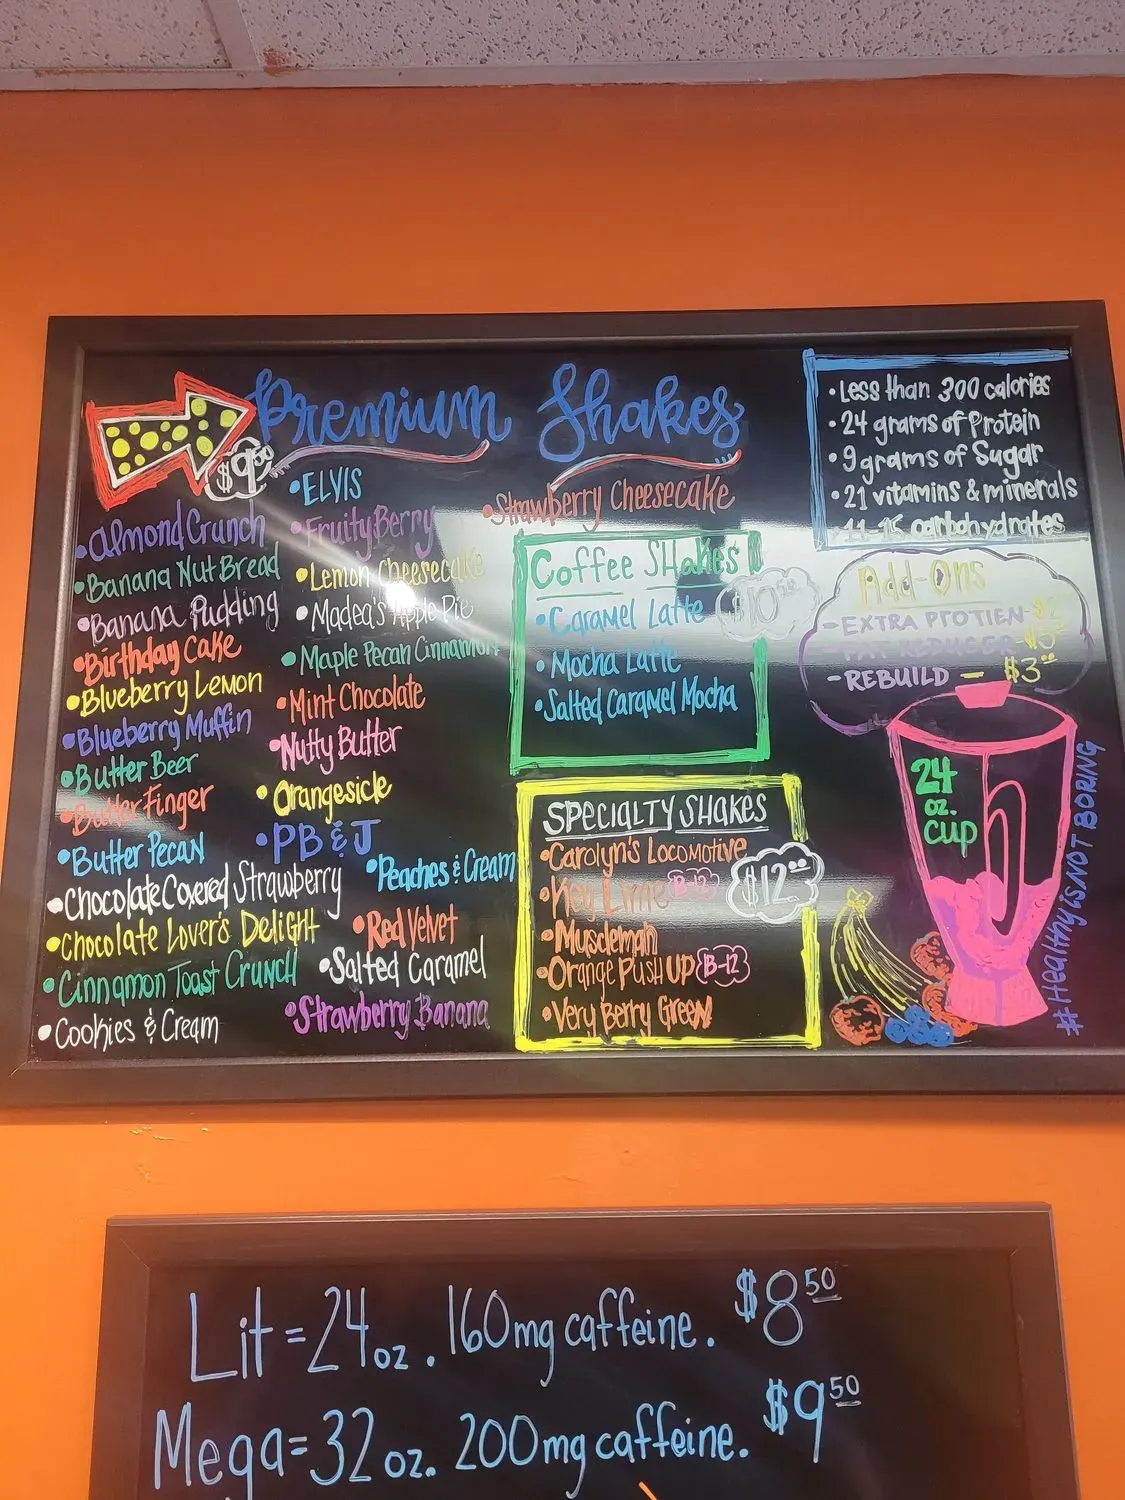 Premium Shakes
$9⁵⁰
•Almond Crunch
•Banana Nut Bread
•Banana Pudding
•Birthday Cake
•Blueberry Lemon
•Blueberry Muffin
•Butter Beer
•Butter Finger
•Butter Pecan
•Chocolate Covered Strawberry
•Chocolate Lover's Delight
•Cinnamon Toast Crunch
•Cookies & Cream
•ELVIS
•Fruity Berry
•Lemon Cheesecake
•Madea's Apple Pie
•Maple Pecan Cinnamon
•Mint Chocolate
•Nutty Butter
•Orangesicle
•PB & J
•Peaches & Cream
•Red Velvet
•Salted Caramel
•Strawberry Banana
•Strawberry Cheesecake
Coffee Shakes
•Caramel Latte
•Mocha Latte
•Salted Caramel Mocha
SPECIALTY SHAKES
$12⁰⁰
•Carolyn's Locomotive
•Key Lime B-12
•Muscleman
•Orange Push UP B-12
•Very Berry Green
•Less than 300 calories
•24 grams of Protein
•9 grams of Sugar
•21 vitamins & minerals
11-15 carbohydrates
Add-Ons
-EXTRA PROTIEN
-FAT REDUCER
-REBUILD - $3⁰⁰
24
oz.
cup
#Healthy IS NOT BORING
Lit = 24 oz. 160mg caffeine. $8⁵⁰
Mega = 32 oz. 200mg caffeine. $9⁵⁰